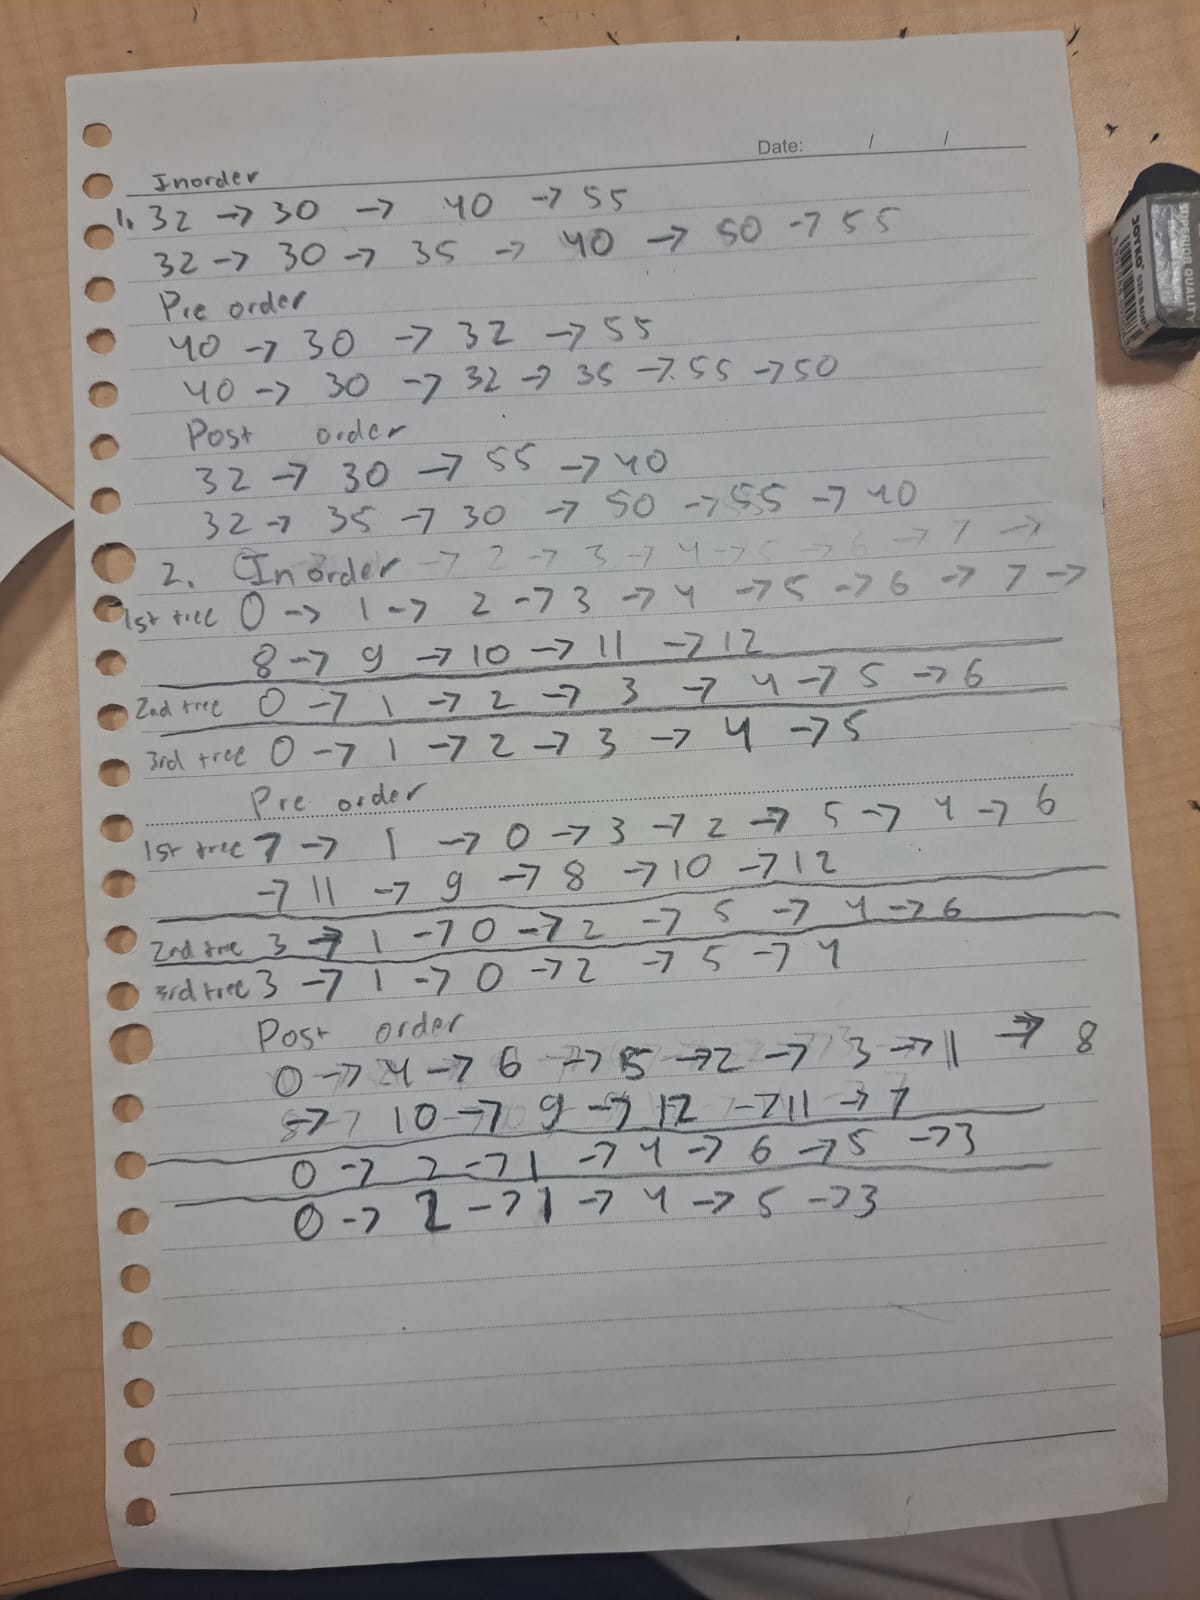 Date: / /
Inorder
1. 32 → 30 → 40 → 55
32 → 30 → 35 → 40 → 50 → 55
Pre order
40 → 30 → 32 → 55
40 → 30 → 32 → 35 → 55 → 50
Post order
32 → 30 → 55 → 40
32 → 35 → 30 → 50 → 55 → 40
2. Inorder → 2 → 3 → 4 → 5 → 6 → 7 →
1st tree 0 → 1 → 2 → 3 → 4 → 5 → 6 → 7 →
8 → 9 → 10 → 11 → 12
2nd tree 0 → 1 → 2 → 3 → 4 → 5 → 6
3rd tree 0 → 1 → 2 → 3 → 4 → 5
Pre order
1st tree 7 → 1 → 0 → 3 → 2 → 5 → 4 → 6
→ 11 → 9 → 8 → 10 → 12
2nd tree 3 → 1 → 0 → 2 → 5 → 4 → 6
3rd tree 3 → 1 → 0 → 2 → 5 → 4
Post order
0 → 4 → 6 → 5 → 2 → 3 → 11 → 8
→ 10 → 9 → 12 → 11 → 7
0 → 2 → 1 → 4 → 6 → 5 → 3
0 → 2 → 1 → 4 → 5 → 3
JOYKO
SUPERIOR QUALITY